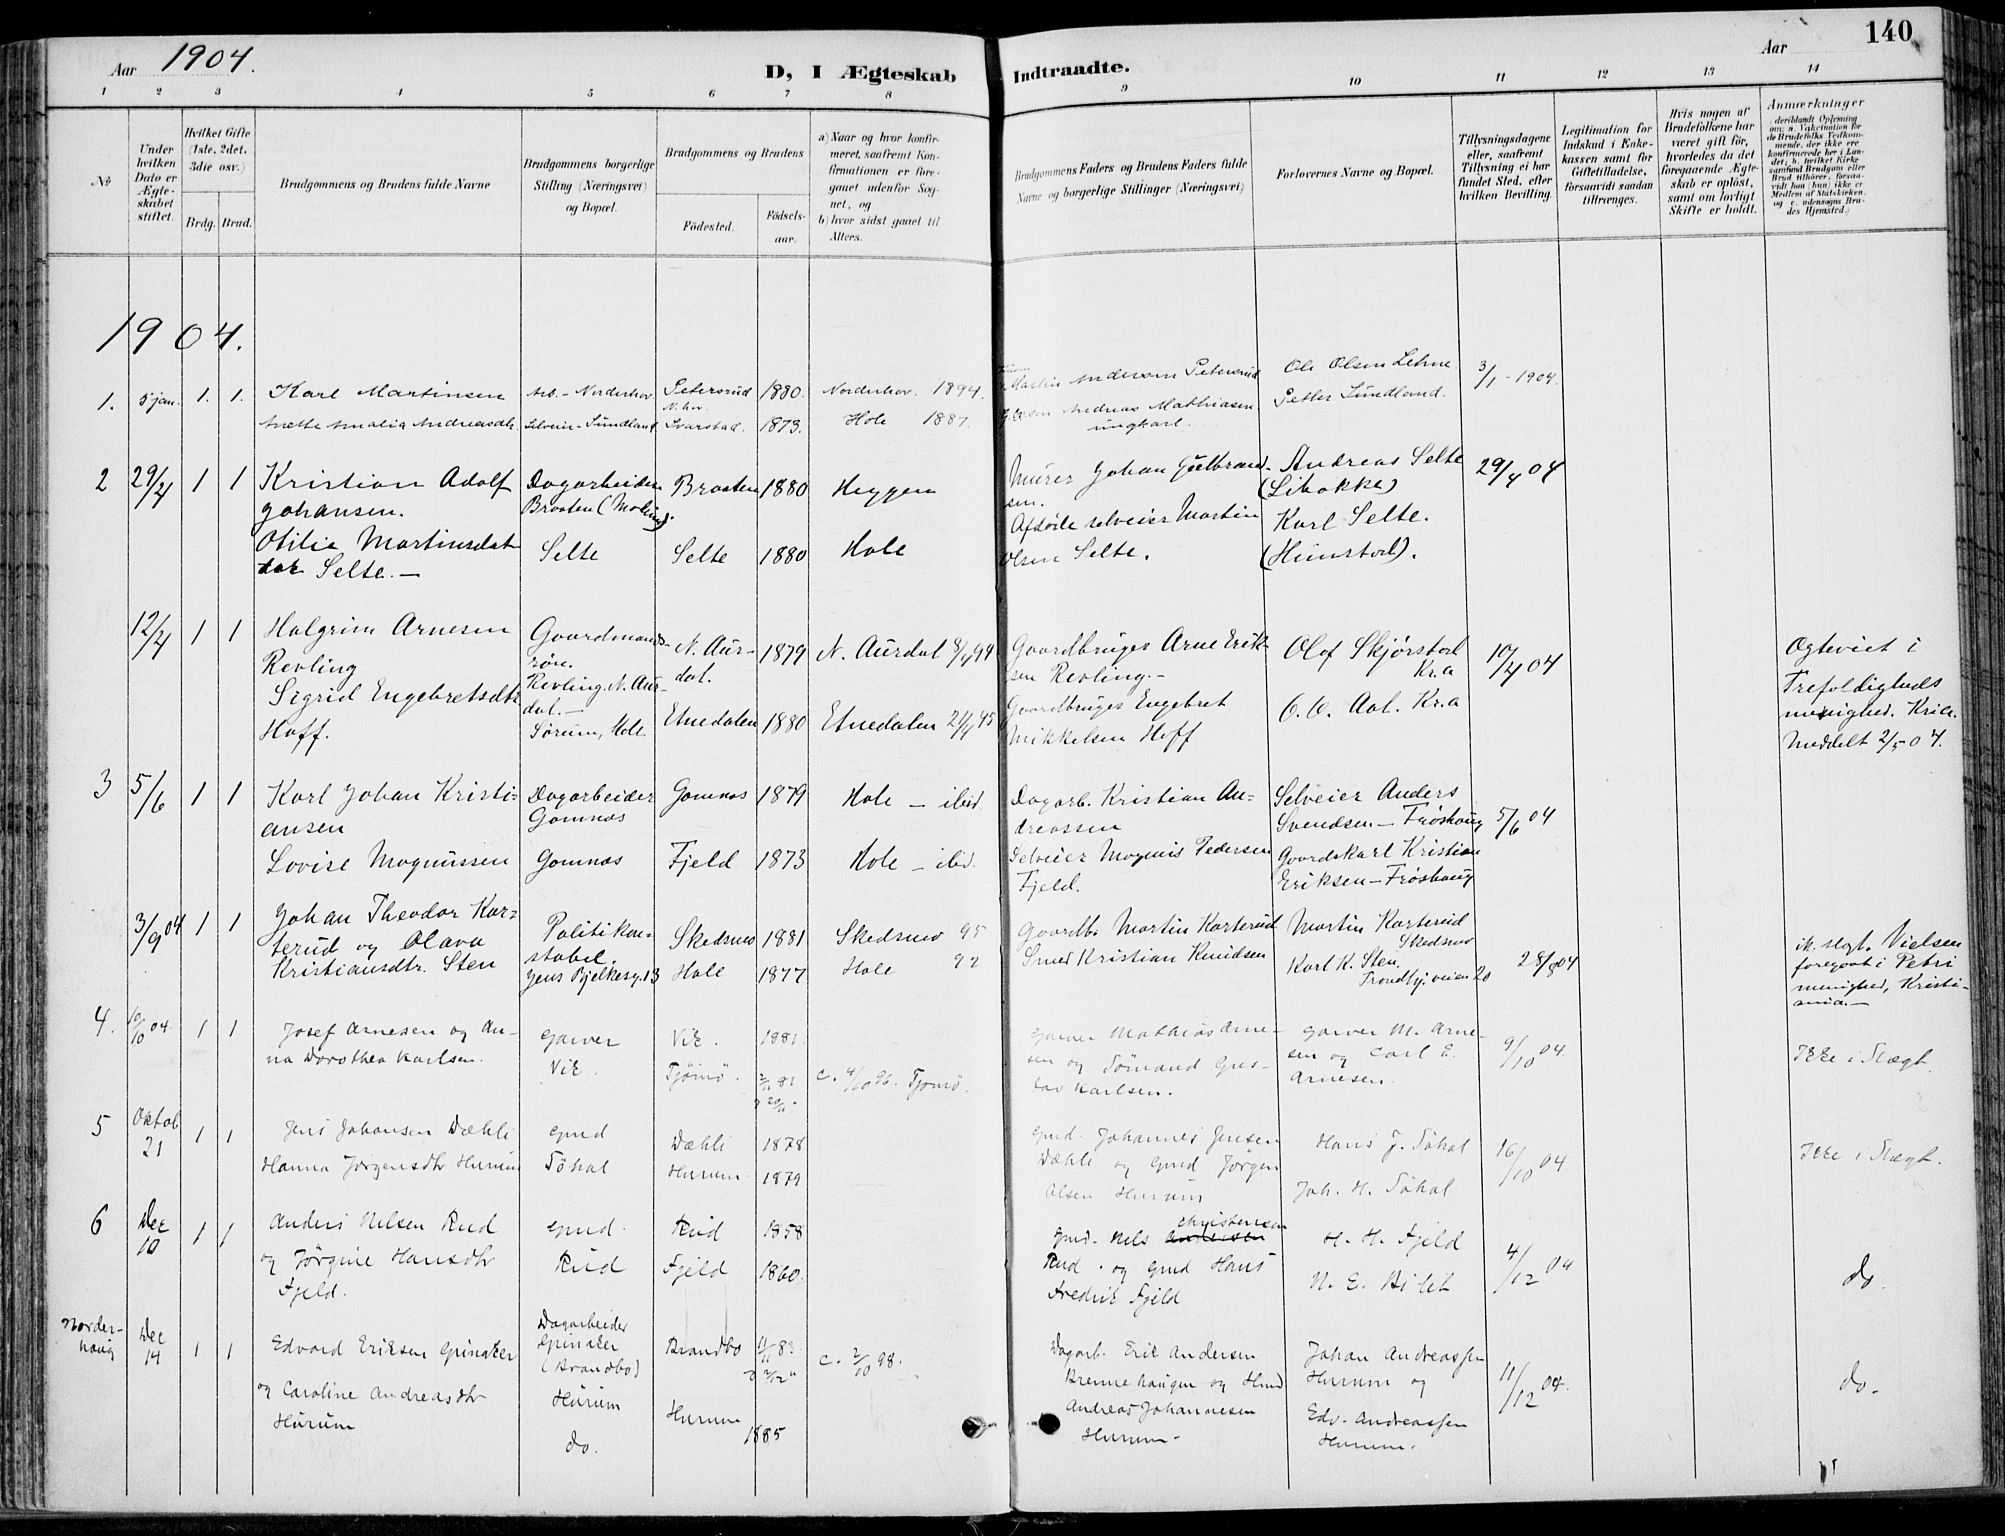 Aar 1904.
D, I Ægteskab Indtraadte.
Aar 140
1 2 3 4 5 6 7 8 9 10 11 12 13 14
No
Under hvilken Dato er Ægteskabet stiftet.
Hvilket Gifte (1ste, 2det, 3die osv.)
Brdg. Brud.
Brudgommens og Brudens fulde Navne
Brudgommens borgerlige Stilling (Næringsvei) og Bopæl.
Brudgommens og Brudens
Födested. Födselsaar.
a) Naar og hvor konfirmeret, saafremt Konfirmationen er foregaaet udenfor Sognet, og
b) hvor sidst gaaet til Alters.
Brudgommens Faders og Brudens Faders fulde Navne og borgerlige Stillinger (Næringsvei)
Forlovernes Navne og Bopæl.
Tillysningsdagene eller, saafremt Tillysning ei har fundet Sted, efter hvilken Bevilling.
Legitimation for Indskud i Enkekassen samt for Giftetilladelse, forsaavidt saadan tiltrænges.
Hvis nogen af Brudefolkene har været gift før, hvorledes da det foregaaende Ægteskab er opløst, samt om lovligt Skifte er holdt.
Anmærkninger
1904.
1. 5 jan. 1. 1. Karl Martinsen Arb. - Norderhov Petersrud N.hov. 1880. Norderhov. 1894. Martin Andersen Petersrud Ole Olsen Lehne 3/1 - 1904.
Mette Amalia Andreasdtr. Selveier - Sundland Svarstad. 1873. Hole 1887. Andreas Mathiasen ungkarl. Petter Sundland.
2 29/4 1 1 Kristian Adolf Johansen. Dagarbeider Braaten (Moling). Braaten 1880 Heggen Murer Johan Gulbrandsen. Andreas Selte 29/4 04
Otilie Martinsdatter Selte. — Selte Selte 1880 Hole Afdöde selveier Martin Olsen Selte. Karl Selte.
12/4 1 1 Halgrim Arnesen Revling Gaardmandssøn. Revling. N. Aurdal. — N. Aurdal. 1879 N. Aurdal 8/4 94 Gaardbruger Arne Eriksen Revling. - Olof Skjørstad Kr.a 10/4 04 Ogteviet i Trefoldigheds menighed. Kria. Meddelt 2/5 04.
Sigrid Engebretsdtr Hoff. Sørum, Hole Etnedalen 1880 Etnedalen 21/4 95 Gaardbruger Engebret Mikkelsen Hoff O. O. Aal. Kr.a
3 5/6 1 1 Karl Johan Kristiansen Dagarbeider Gomnæs Gomnæs 1879 Hole — ibid. Dagarb. Kristian Andreassen Selveier Anders Svendsen — Frøshaug 5/6 04
Lovise Magnussen Gomnæs Fjeld 1873 Hole — ibid. Selveier Magnus Pedersen Fjeld. Gaardskarl Kristian Eriksen — Frøshaug
3/9 04 1 1 Johan Theodor Karterud og Olava Kristiansdtr. Sten Politikonstabel. Jens Bjelkesg. 13 Skedsmo 1881 Skedsmo 95 Gaardb. Martin Karterud Martin Karterud Skedsmo 28/8 04 ik. slgt. Vielsen foregaat i Petri menighed, Kristiania. —
Hole 1877 Hole 92 Smed Kristian Knudsen Karl K. Sten. Trondhj.veien 20
4. 10/10 04. 1 1 Josef Arnesen og Anna Dorothea Karlsen. Garver Vik. Vik. 1881. Garver Mathias Arnesen og Sömand Gustav Karlsen. Garver M. Arnesen og Carl E. Arnesen. 9/10 04. Ikke i Slægt.
Tjömö. c. 4/10 96. Tjomö.
5 Oktob 21 1 1 Jens Johansen Dæhli Gmd Söhol Dæhli 1878 Gmd. Johannes Jensen Dæhli og Gmd Jørgen Olsen Hurum Hans J. Söhol 16/10 04. Ikke i Slægt.
Hanna Jørgensdtr Hurum Hurum. 1879 Joh. H. Söhol
6 Dec 10 1 1 Anders Nelsen Rud Gmd. Rud Rud 1858 Gmd. Nels christensen Rud. og Gmd Hans Fredrik Fjeld H. H. Fjeld 4/12 04 do.
og Jørgine Hansdtr Fjeld. Fjeld 1860. N. E. Bilet
Norderhaug Dec 14 1 1 Edvard Eriksen Grinaker Dagarbeider Grinaker (Brandbo) Brandbo 11/11 83 c. 2/10 98. Dagarb. Erik Andersen Brennehaugen og Hmd Andreas Johannesen Hurum - Johan Andreassen Hurum og 11/12 04. do.
og Caroline Andreasdtr Hurum Hurum do. Hurum 1885 Edv. Andreassen Hurum.